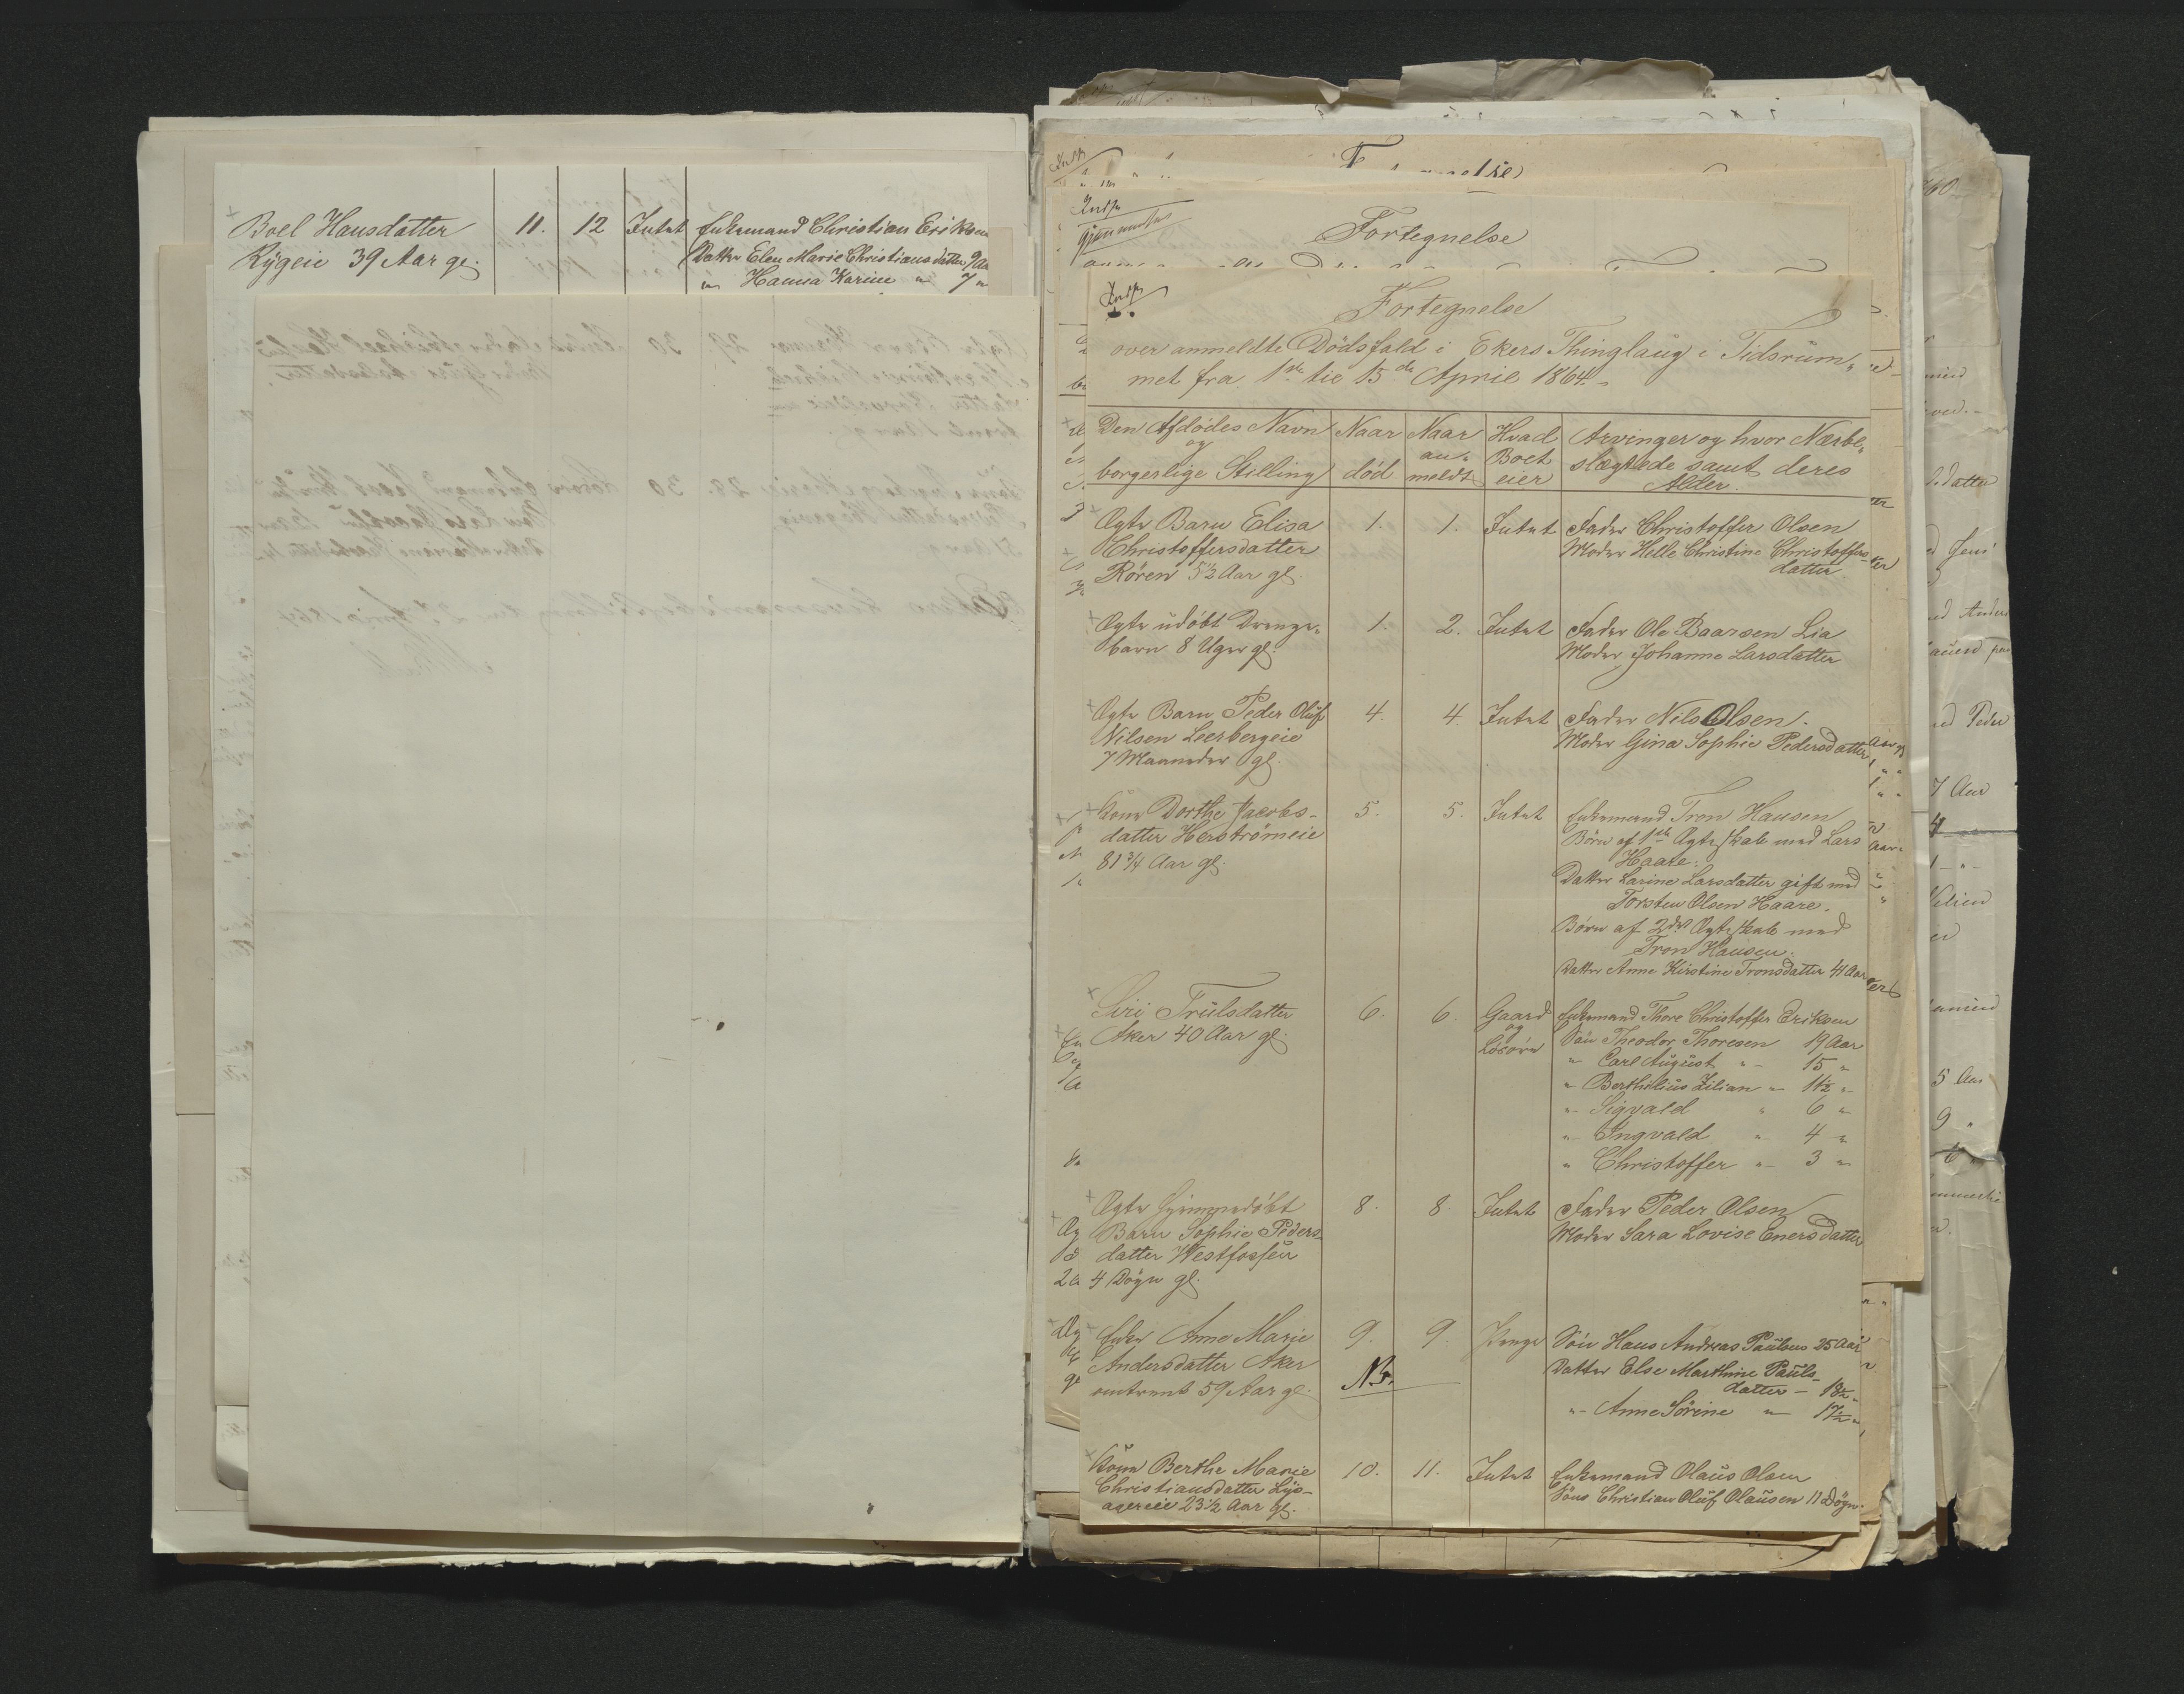 Boel Hansdatter 11. 12 Intet Enkemand Christian Eriksen
Rygeie 39 Aar gl. Datter Elen Marie Christiansdatter 9 Aar
" Hanna Karine " 7 "
Fortegnelse
Fortegnelse
over anmeldte Dödsfald i Ekers Thinglaug i Tidsrüm-
met fra 1ste til 15de April 1864.
Den Afdödes Navn Naar Naar Hvad Arvinger og hvor Nærbe-
og an- Boet slægtede samt deres
borgerlige Stilling död meldt eier Alder.
Ægte Barn Elisa 1. 1. Intet Fader Christoffer Olsen
Christoffersdatter Moder Helle Christine Christoffers-
Rören 5½ Aar gl. datter
Ægte üdöbt Drenge- 1. 2. Intet Fader Ole Baarsen Lia
barn 8 Uger gl. Moder Johanne Larsdatter
Ægte Barn Peder Olüf 4. 4. Intet Fader Nils Olsen.
Nilsen Leerbergeie Moder Gina Sophie Pedersdatter
7 Maaneder gl.
Kone Dorthe Jacobs- 5. 5. Intet Enkemand Tron Hansen
datter Herströmeie Börn af 1ste Ægteskab med Lars
81¾ Aar gl. Haare.
Datter Larine Larsdatter gift med
Torsten Olsen Haare.
Börn af 2det Ægteskab med
Tron Hansen.
Datter Anne Kirstine Tronsdatter 41 Aar
Siri Trülsdatter 6. 6. Gaard Enkemand Thore Christoffer Eriksen
Aker 40 Aar gl. og Sön Theodor Thoresen 19 Aar
Lösöre " Carl Aügüst " 15 "
" Berthelius Zilian " 11½ "
" Sigvald " 6 "
" Ingvald " 4 "
" Christoffer " 3 "
Ægte hjemmedöbt 8. 8 Intet Fader Peder Olsen
Barn Sophie Peders- Moder Sara Lovise Enersdatter
datter Westfossen
4 Dögn gl.
Enke Anne Marie 9. 9. Penge Sön Hans Andreas Paülsen 25 Aar
Andersdatter Aker Datter Else Marthine Paüls-
omtrent 59 Aar gl. NB. datter 18½ "
" Anne Sörine " 17½ "
Kone Berthe Marie 10. 11. Intet Enkemand Olaüs Olsen
Christiansdatter Lys- Söns Christian Olüf Olaüsen 11 Dögn.
agereie 23½ Aar gl.